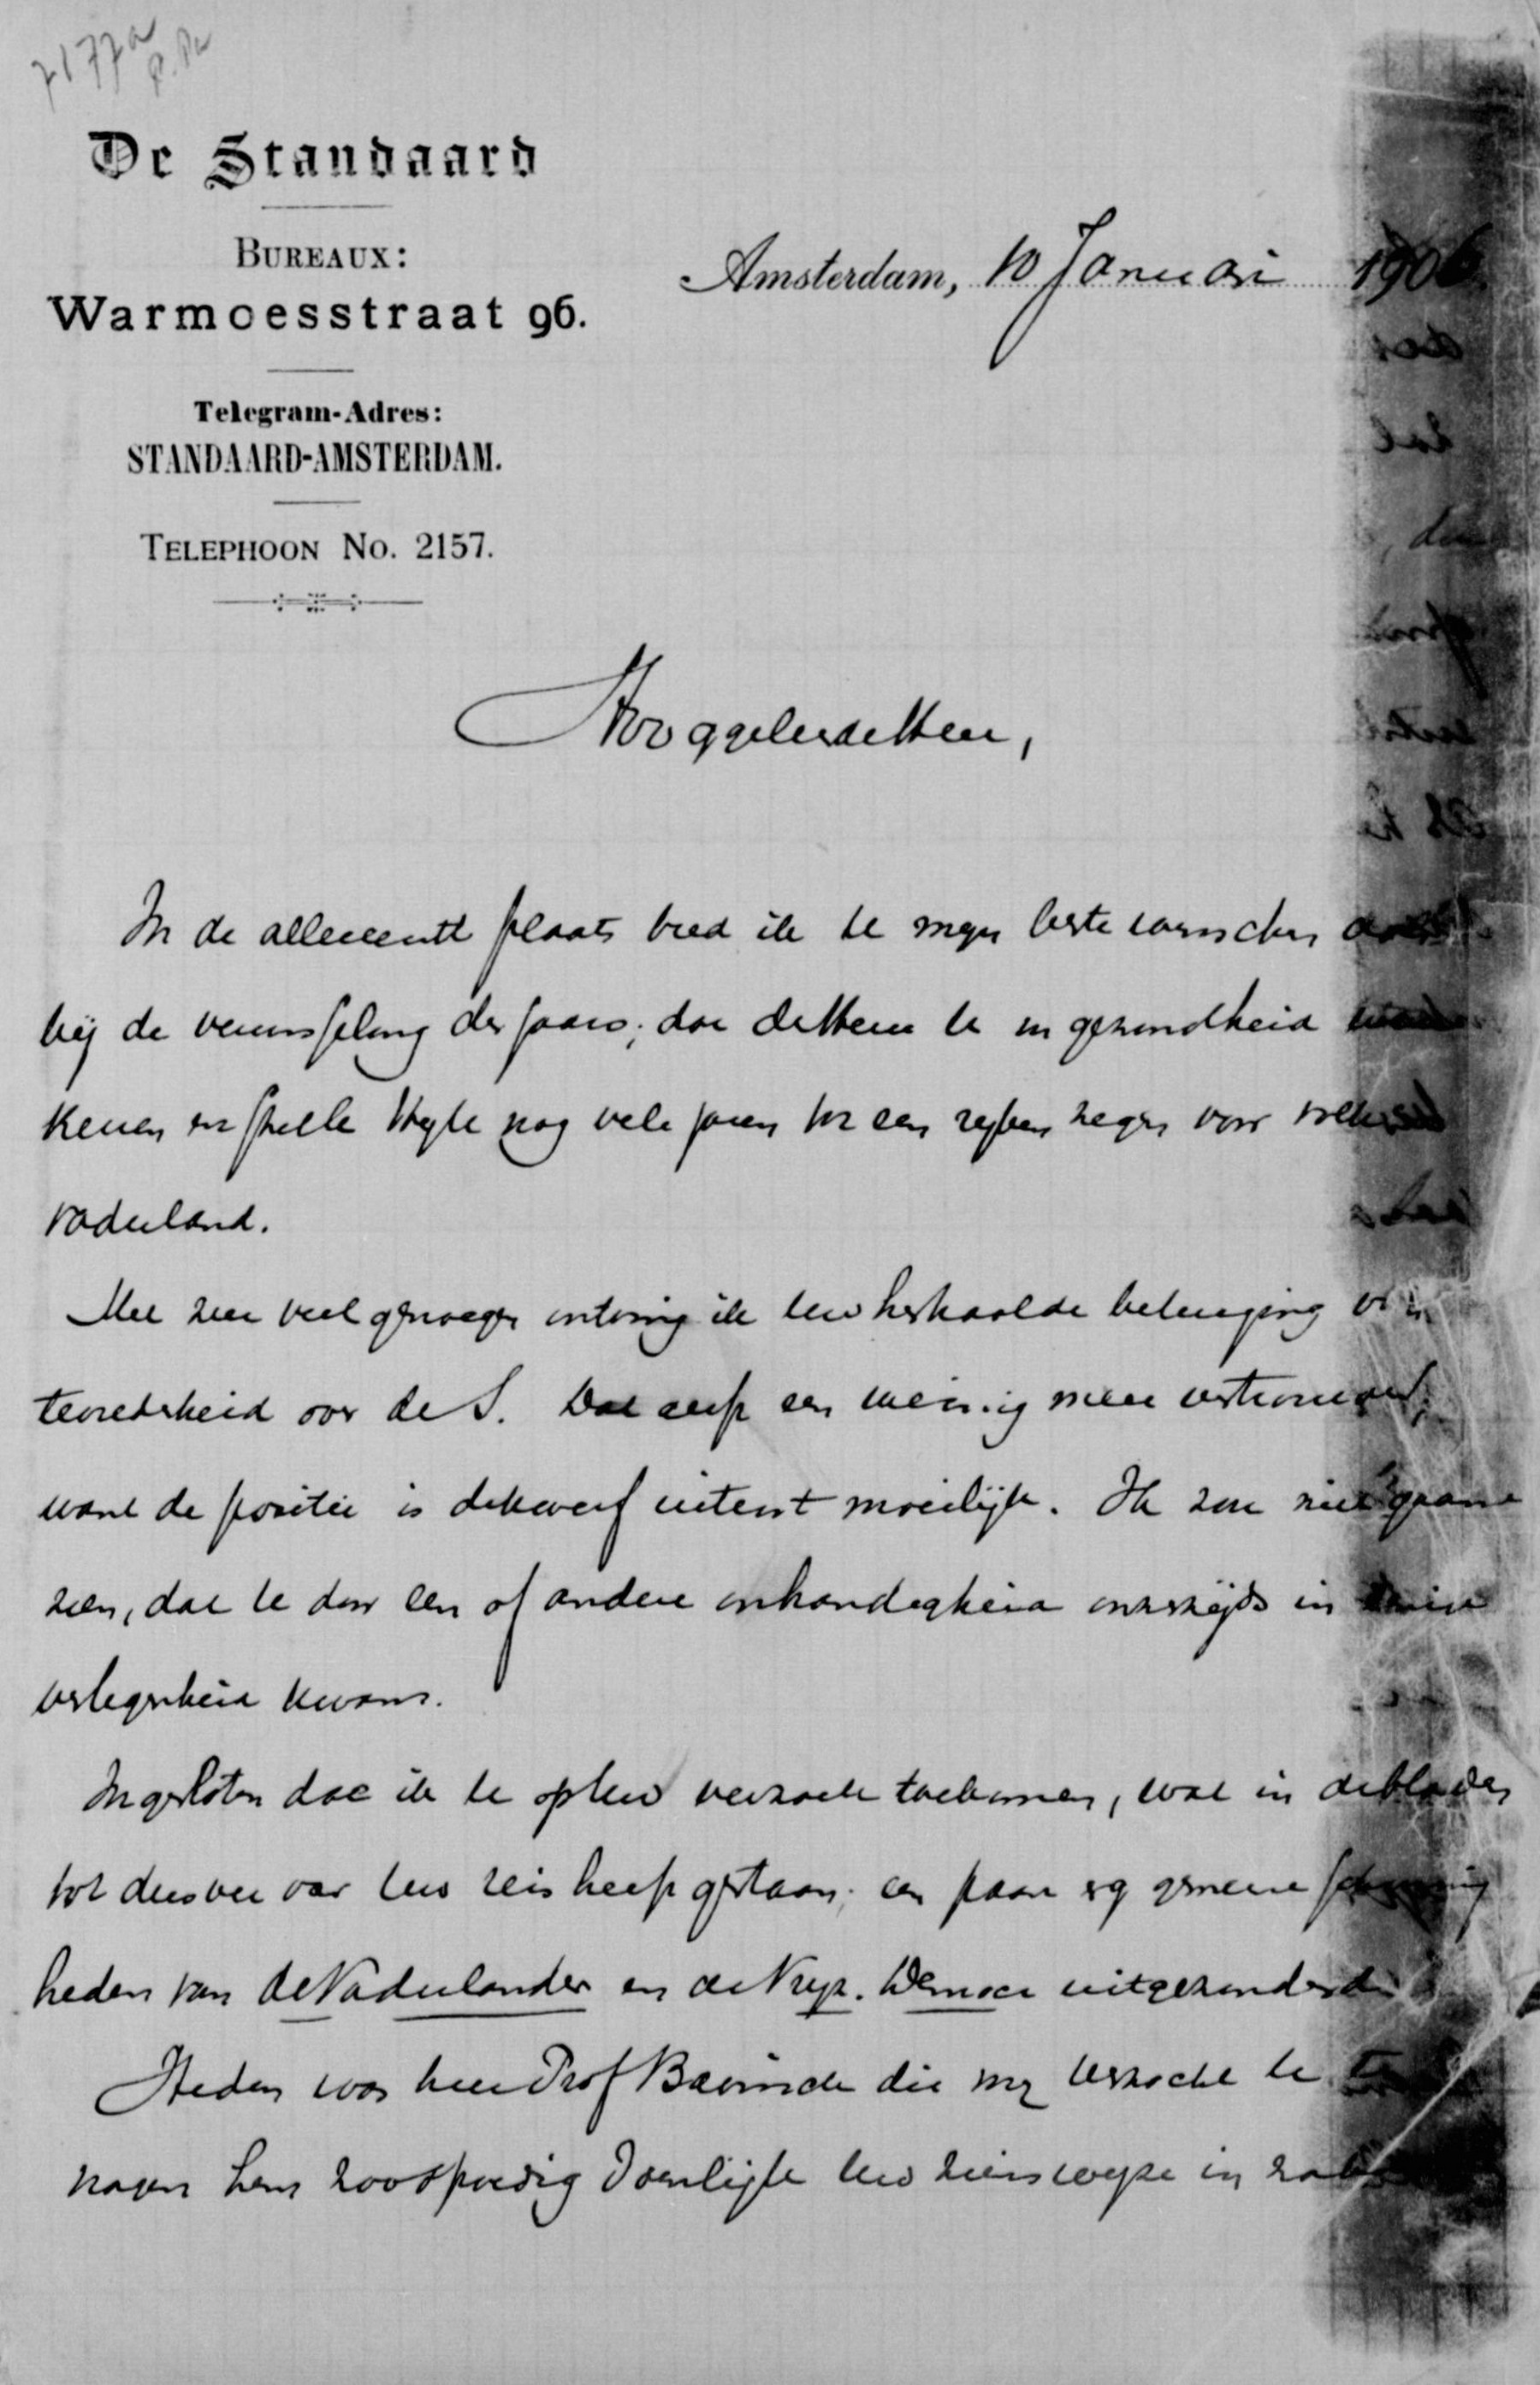 7177a
De Standaard
BUREAUX:
Warmoesstraat 96.
Telegram-Adres:
STANDAARD-AMSTERDAM.
TELEPHOON No. 2157.
Amsterdam, 10 Januari 1906
Hooggeleerde Heer,
In de allereerste plaats bied ik U mijn beste wenschen
bij de verwisseling des jaars; doe de Heere U in gezondheid
keeren en stelle Hij U nog vele jaren tot een rijken zegen voor volk en
vaderland.
Met zeer veel genoegen ontving ik Uw herhaalde betuiging van
tevredenheid over de S. Dat geeft een weinig meer vertrouwen,
want de positie is dikwerf uiterst moeilijk. Ik zou niet gaarne
zien, dat U door een of andere onhandigheid onzerzijds in
verlegenheid kwam.
Ingesloten doe ik U op Uw verzoek toekomen, wat in de bladen
tot dusver over Uw reis heeft gestaan; een paar erg gemeene
heden van de Nederlander en de Vrijz. Democr uitgezonderd.
Heden was hier Prof Bavinck die mij verzocht U te
vragen hem zoo spoedig doenlijk Uw zienswijze in